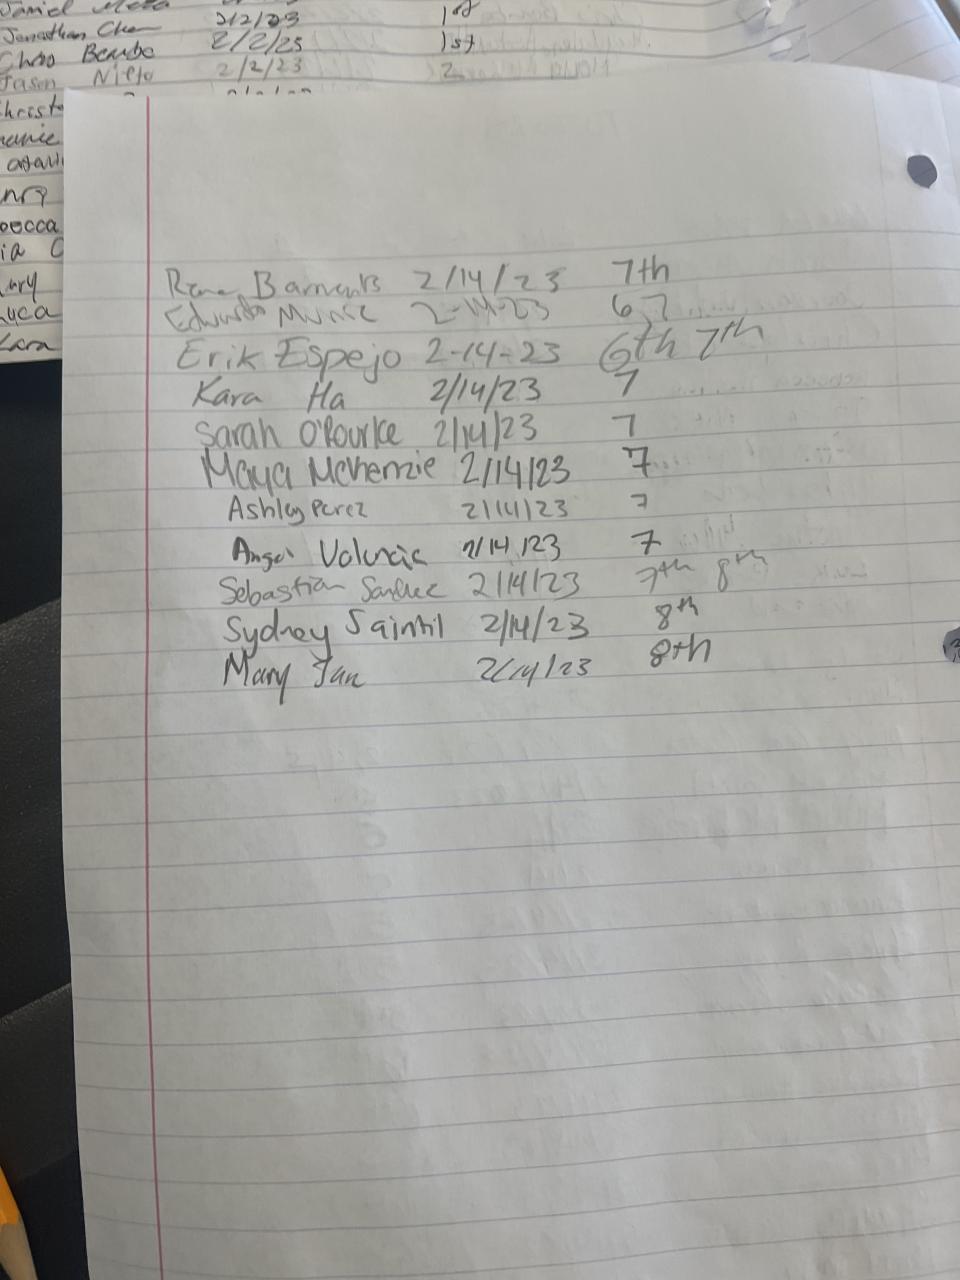 Daniel 2/2/23 1st
Jonathan Chen 2/2/23 1st
Chris Bembe 2/2/23 1st
Jason Nieto 2/2/23 2
Christ
anie
nry
becca
ia C
uca
Kara
2/14/23 7th
2-14-23 6,7
Erik Espejo 2-14-23 6th 7th
Kara Ha 2/14/23 7
Sarah O'Rourke 2/14/23 7
Maya McKenzie 2/14/23 7
Ashley Perez 2/14/23 7
Angel 2/14/23 7
Sebastian 2/14/23 7th 8th
Sydney Saintil 2/14/23 8th
Mary 2/14/23 8th